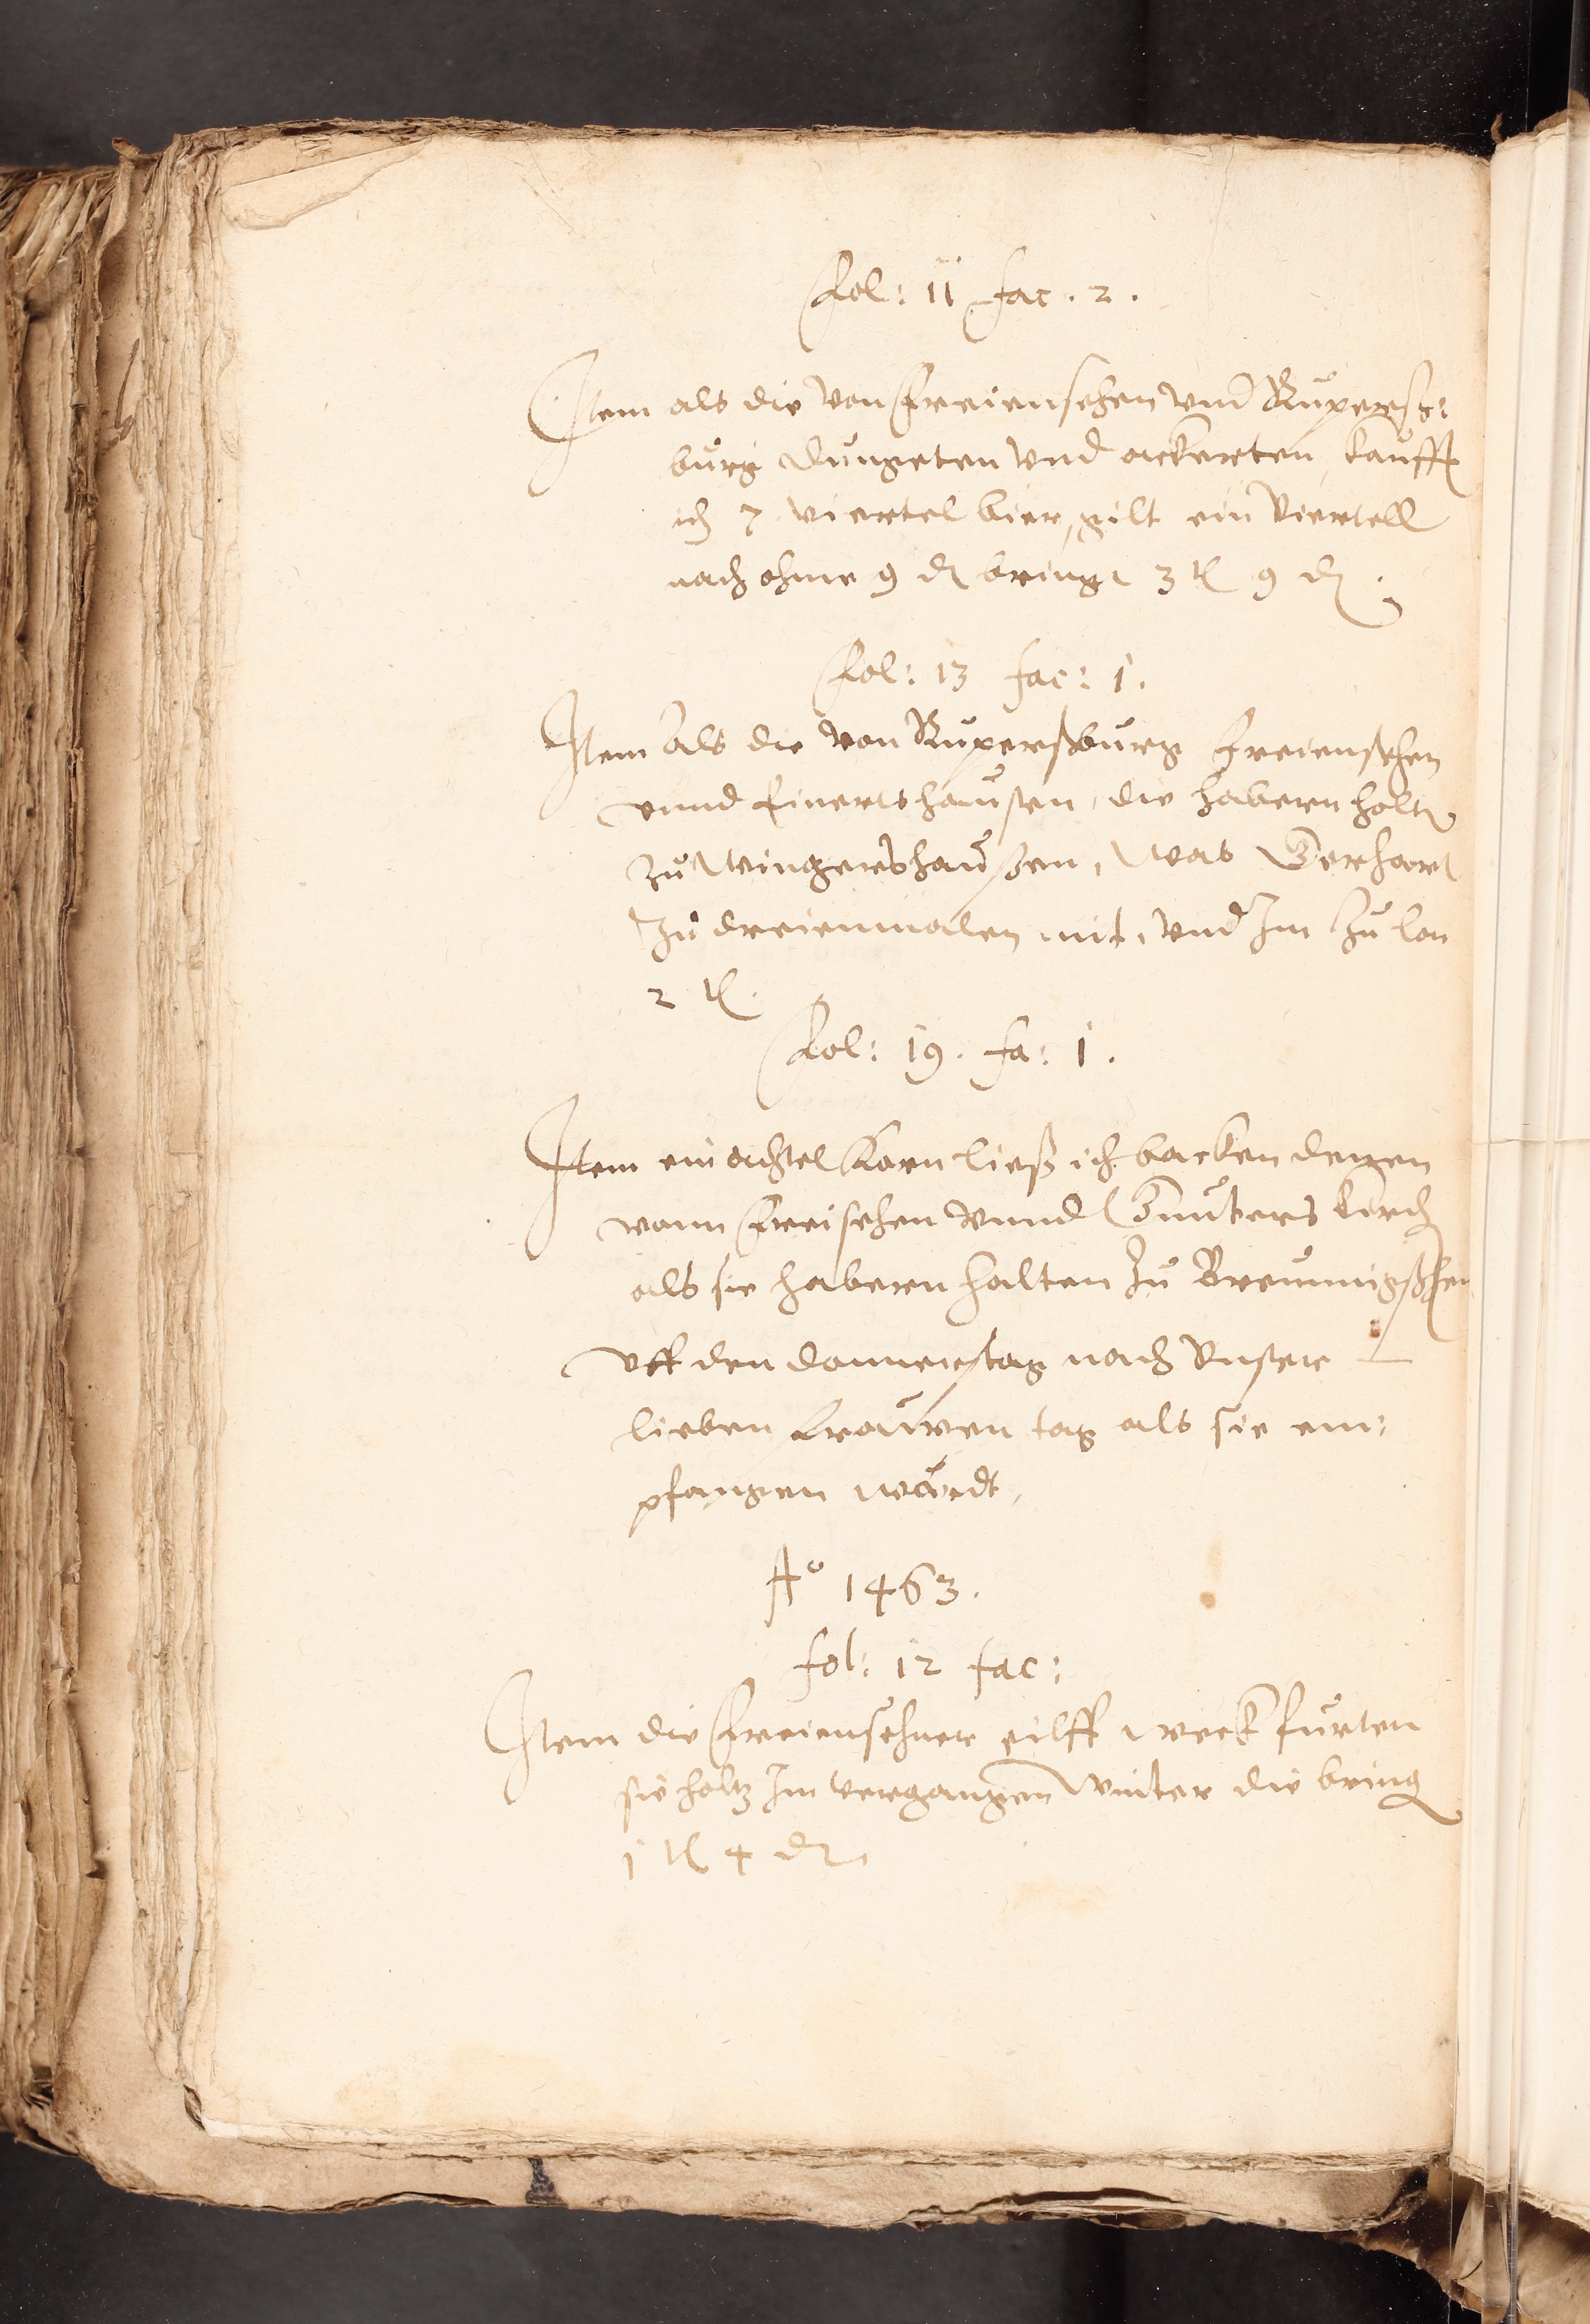 Fol: 11 fac. 2.
Item als die von Freiensehen vnd Ruperß:
burg dungeten vnd ackerten, kaufft
ich 7 viertel bier, gilt ein viertell
nach ohme 9 ₰ bringt 3 tℓ 9 ₰.
Fol: 13 fac: 1.
Item als die von Ruperßburg Freiensehen
vnnd Einertshaußen, die habern holt
zu Wingershaußen, was Gerhart
zu dreienmalen mit, vnd Im zu lon
2 tℓ.
Fol: 19. fa: 1.
Item ein achtel Korn ließ ich backen denen
vonn Freisehen vnnd Gunters kirch
als sie habern holten zu Breungeßhen
vff den donnerstag nach vnser
lieben frauwen tag als sie em:
pfangen wardt,
Aº 1463.
fol: 12 fac:
Item die Freiensehner eilff weck furten
sie holtz Im vergangen Winter die bring
1 tℓ 4 ₰